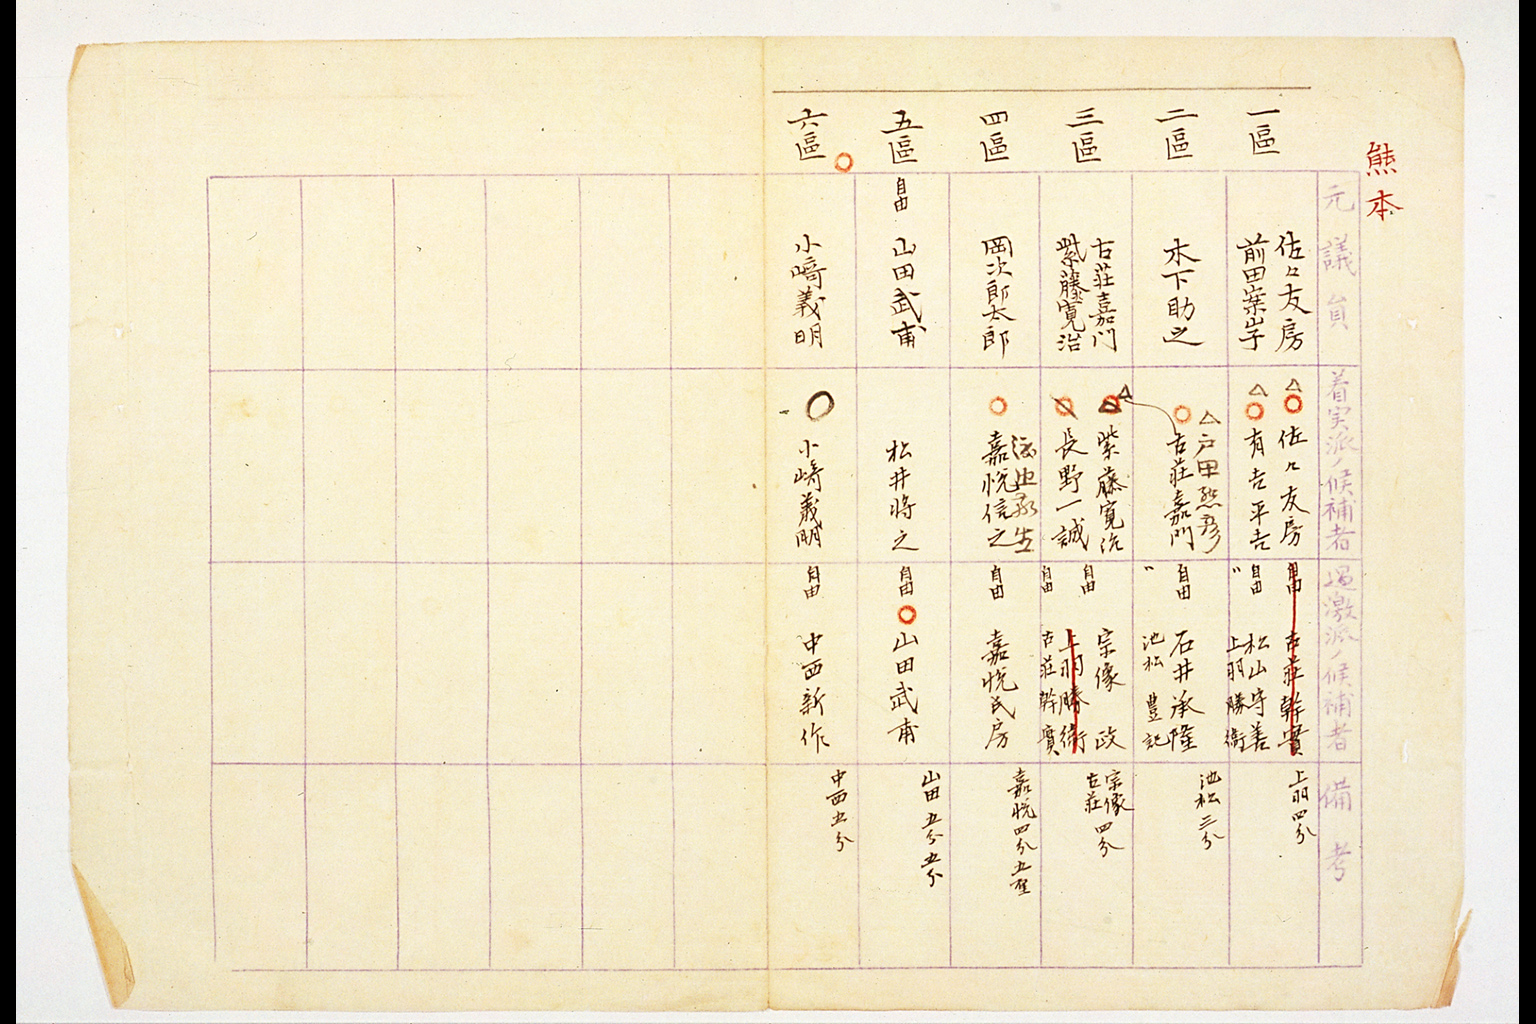 熊本
元議員
着実派ノ候補者
過激派ノ候補者
備考
一區
佐々友房
前田案山子
佐々友房
有吉平吉
自由 古荘幹實
自由 松山守善
〃 上羽勝衛
上羽四分
二區
木下助之
戸田熊彦
古荘嘉門
自由 石井承隆
〃 池松豊記
池松三分
三區
古荘嘉門
紫藤寛治
紫藤寛治
長野一誠
自由 宗像政
自由 上羽勝衛
古荘幹實
宗像
古荘 四分
四區
岡次郎太郎
嘉悦信之
自由 嘉悦氏房
嘉悦四分五厘
五區
自由 山田武甫
松井将之
自由 山田武甫
山田五分五分
六區
小﨑義明
小﨑義明
自由 中西新作
中西五分